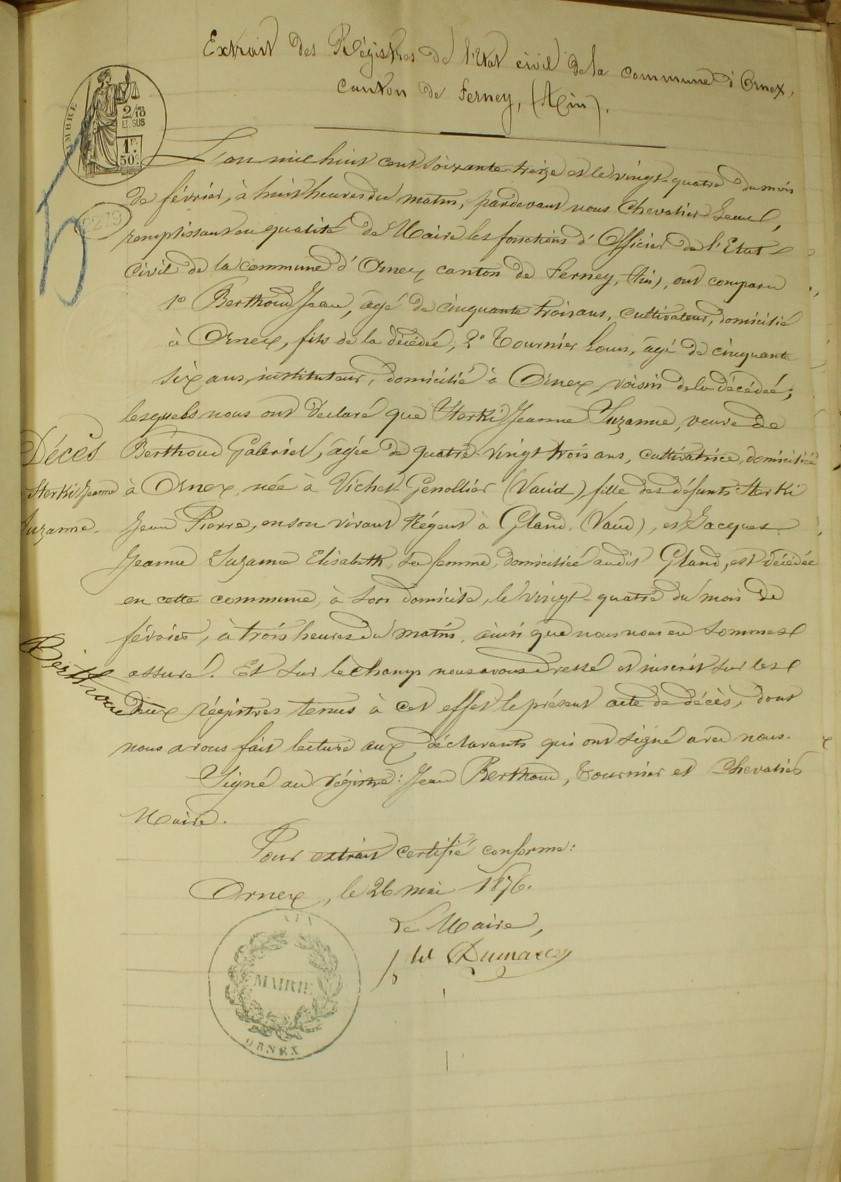 Extrait des Régistres de l'Etat civil de la commune d'Ornex,
canton de Ferney, (Ain).
TIMBRE
2/10
EN SUS
1F
50c
L'an mil huit cent soixante treize et le vingt-quatre du mois
de février, à huit heures du matin, pardevant nous Chevalier
remplissant en qualité de Maire les fonctions d'Officier de l'Etat
Civil de la commune d'Ornex canton de Ferney, (Ain), ont comparu
1° Berthoud Jean, âgé de cinquante trois ans, cultivateur, domicilié
à Ornex, fils de la décédée, 2° Tournier Louis, âgé de cinquante
six ans, instituteur, domicilié à Ornex, voisin de la décédée;
lesquels nous ont déclaré que Sterki Jeanne Suzanne, veuve de
Décès
Berthoud Gabriel, âgée de quatre-vingt trois ans, cultivatrice, domiciliée
Sterki Jeanne
à Ornex, née à Vichet Genollier (Vaud), fille des défunts Sterki
Suzanne.
Jean Pierre, en son vivant Régent à Gland (Vaud), et Jacques
Jeanne Suzanne Elisabeth, sa femme, domiciliée audit Gland, est décédée
en cette commune, à son domicile, le vingt-quatre du mois de
février, à trois heures du matin, ainsi que nous nous en sommes
Berthoud
assuré. Et sur le champ nous avons dressé et inscrit sur les
deux régistres tenus à cet effet le présent acte de décès, dont
nous avons fait lecture aux déclarants qui ont signé avec nous.
Signé au régistre: Jean Berthoud, Tournier et Chevalier
Maire.
Pour extrait certifié conforme:
Ornex, le 26 mai 1876.
Le Maire,
Dumarey
AIN
MAIRIE
ORNEX